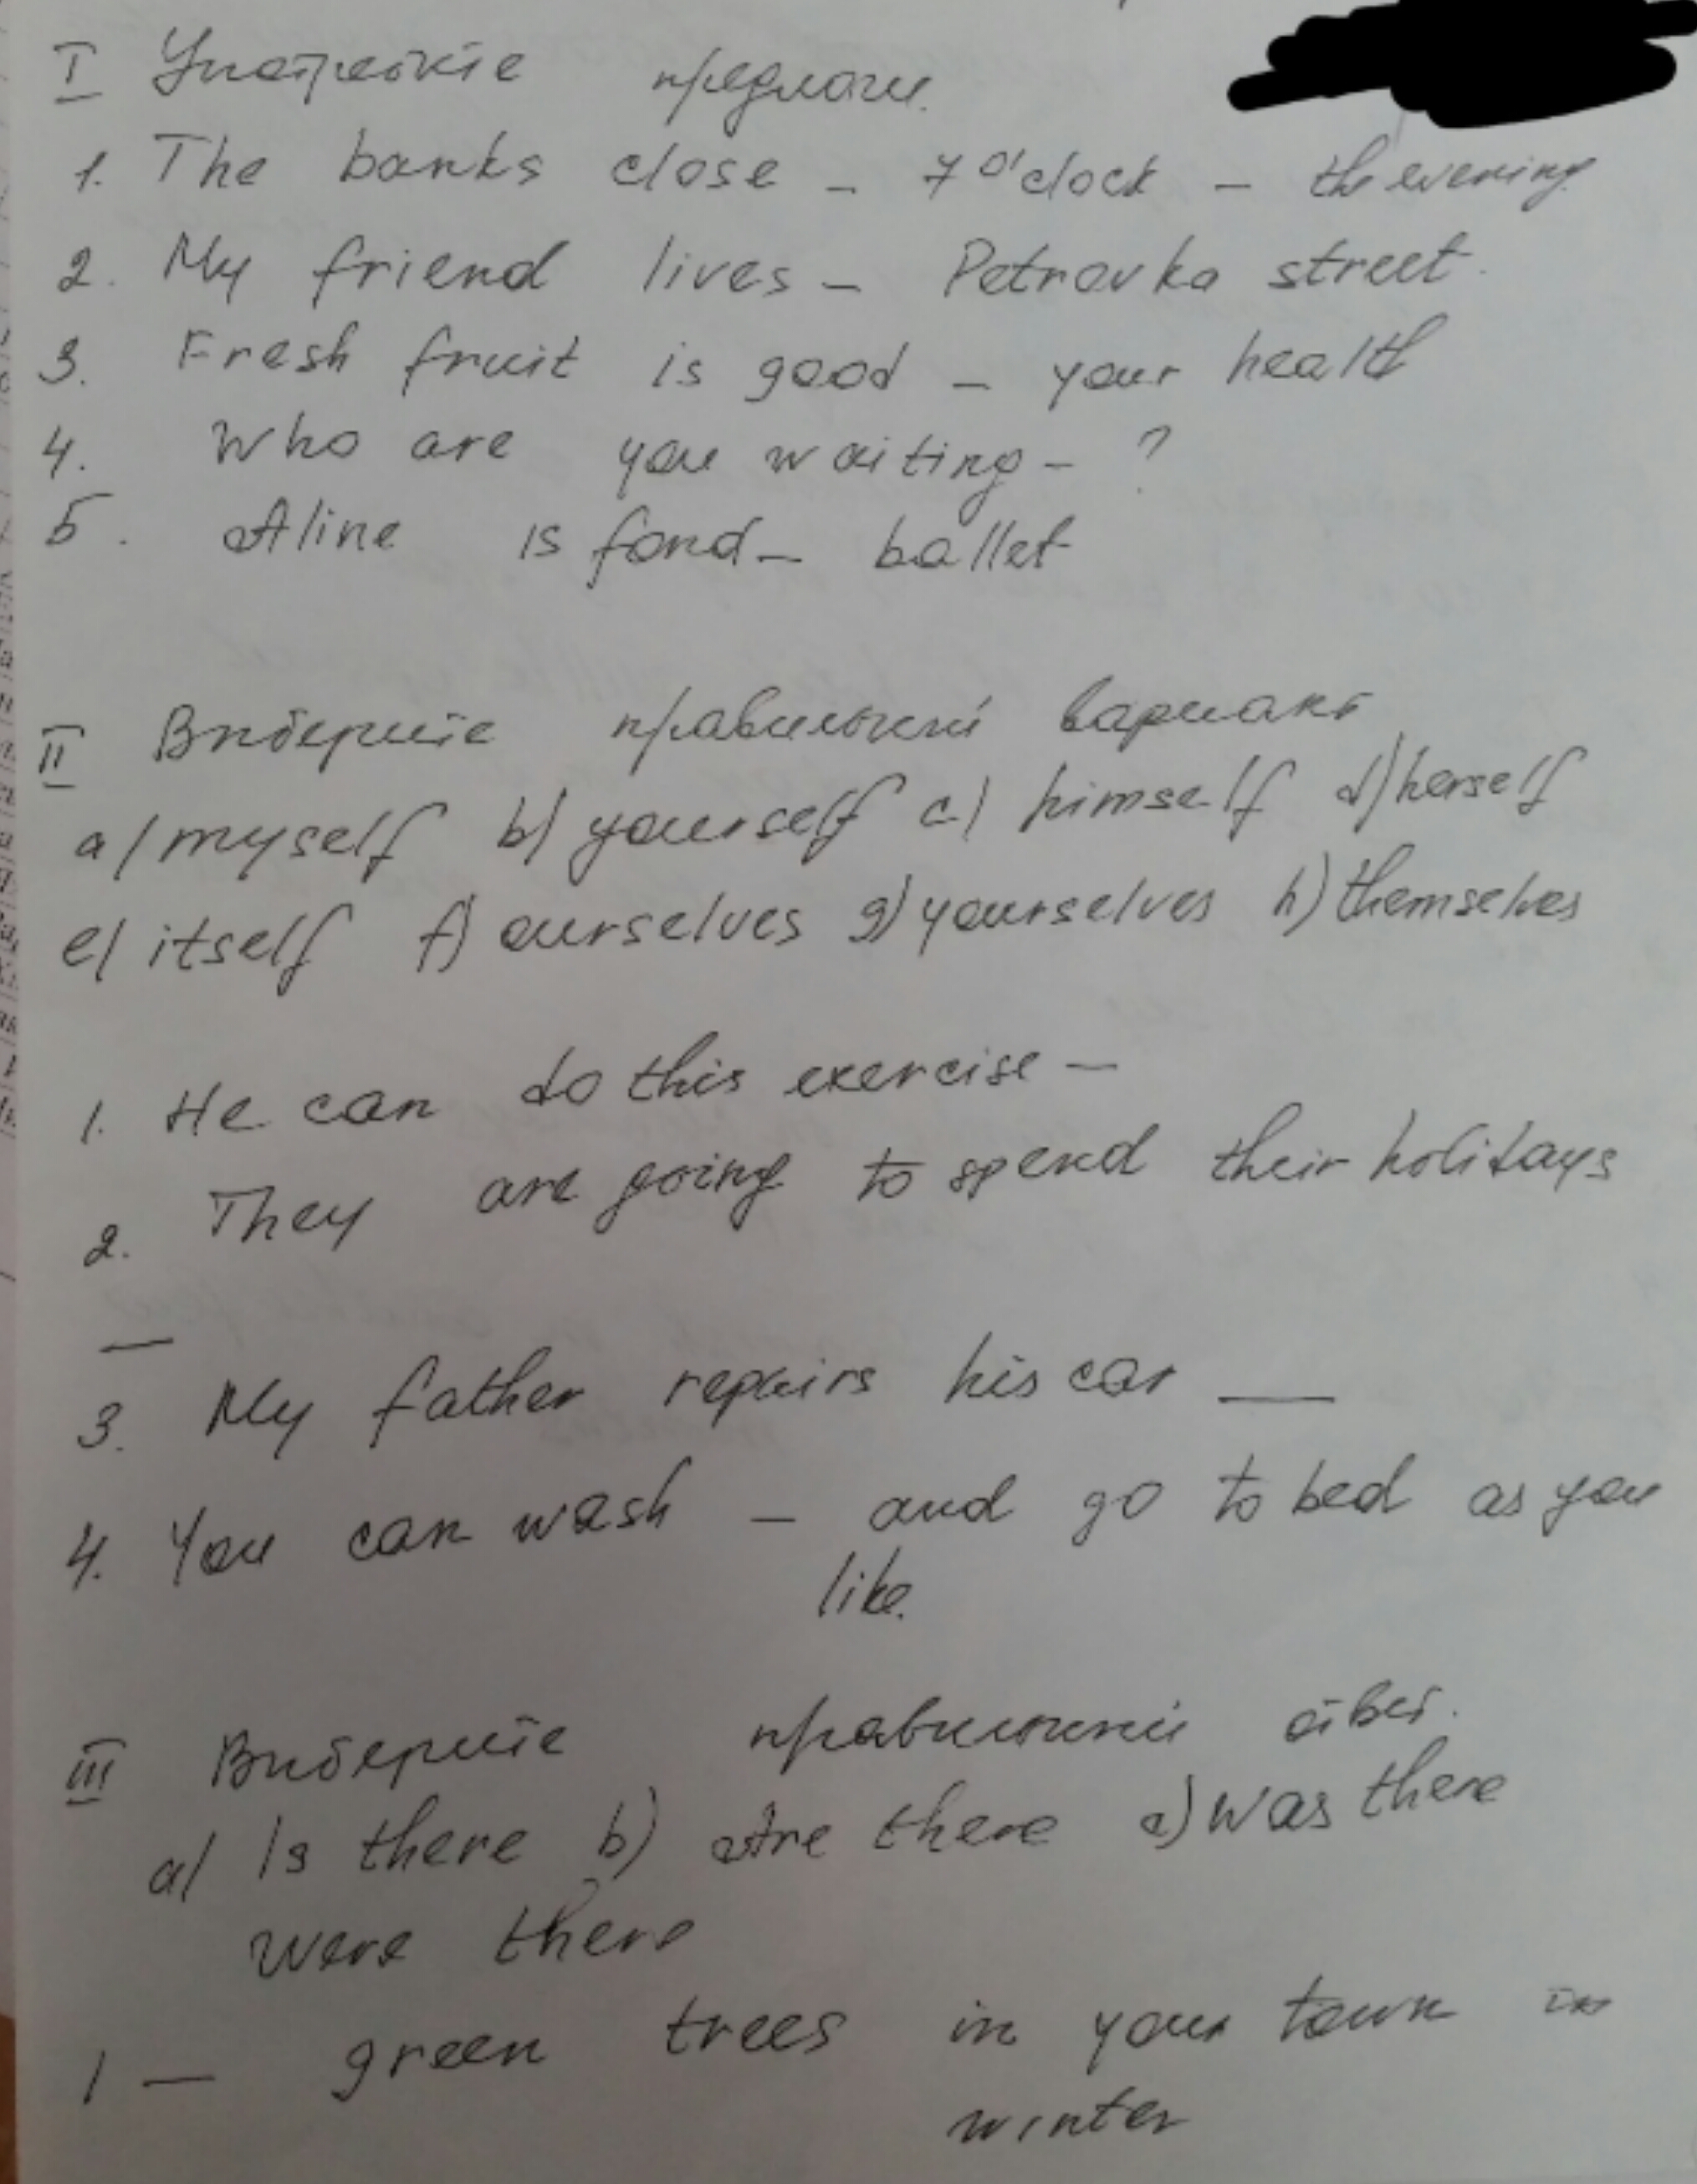 I Употребите предлоги.
1. The banks close - 7 o'clock - the evening
2. My friend lives - Petrovka street.
3. Fresh fruit is good - your health
4. Who are you waiting - ?
5. Aline is fond - ballet
II Выберите правильный вариант
a) myself b) yourself c) himself d) herself
e) itself f) ourselves g) yourselves h) themselves
1. He can do this exercise —
2. They are going to spend their holidays
—
3. My father repairs his car —
4. You can wash - and go to bed as you
like.
III Выберите правильный ответ.
a) Is there b) Are there c) was there
were there
1 — green trees in your town in
winter